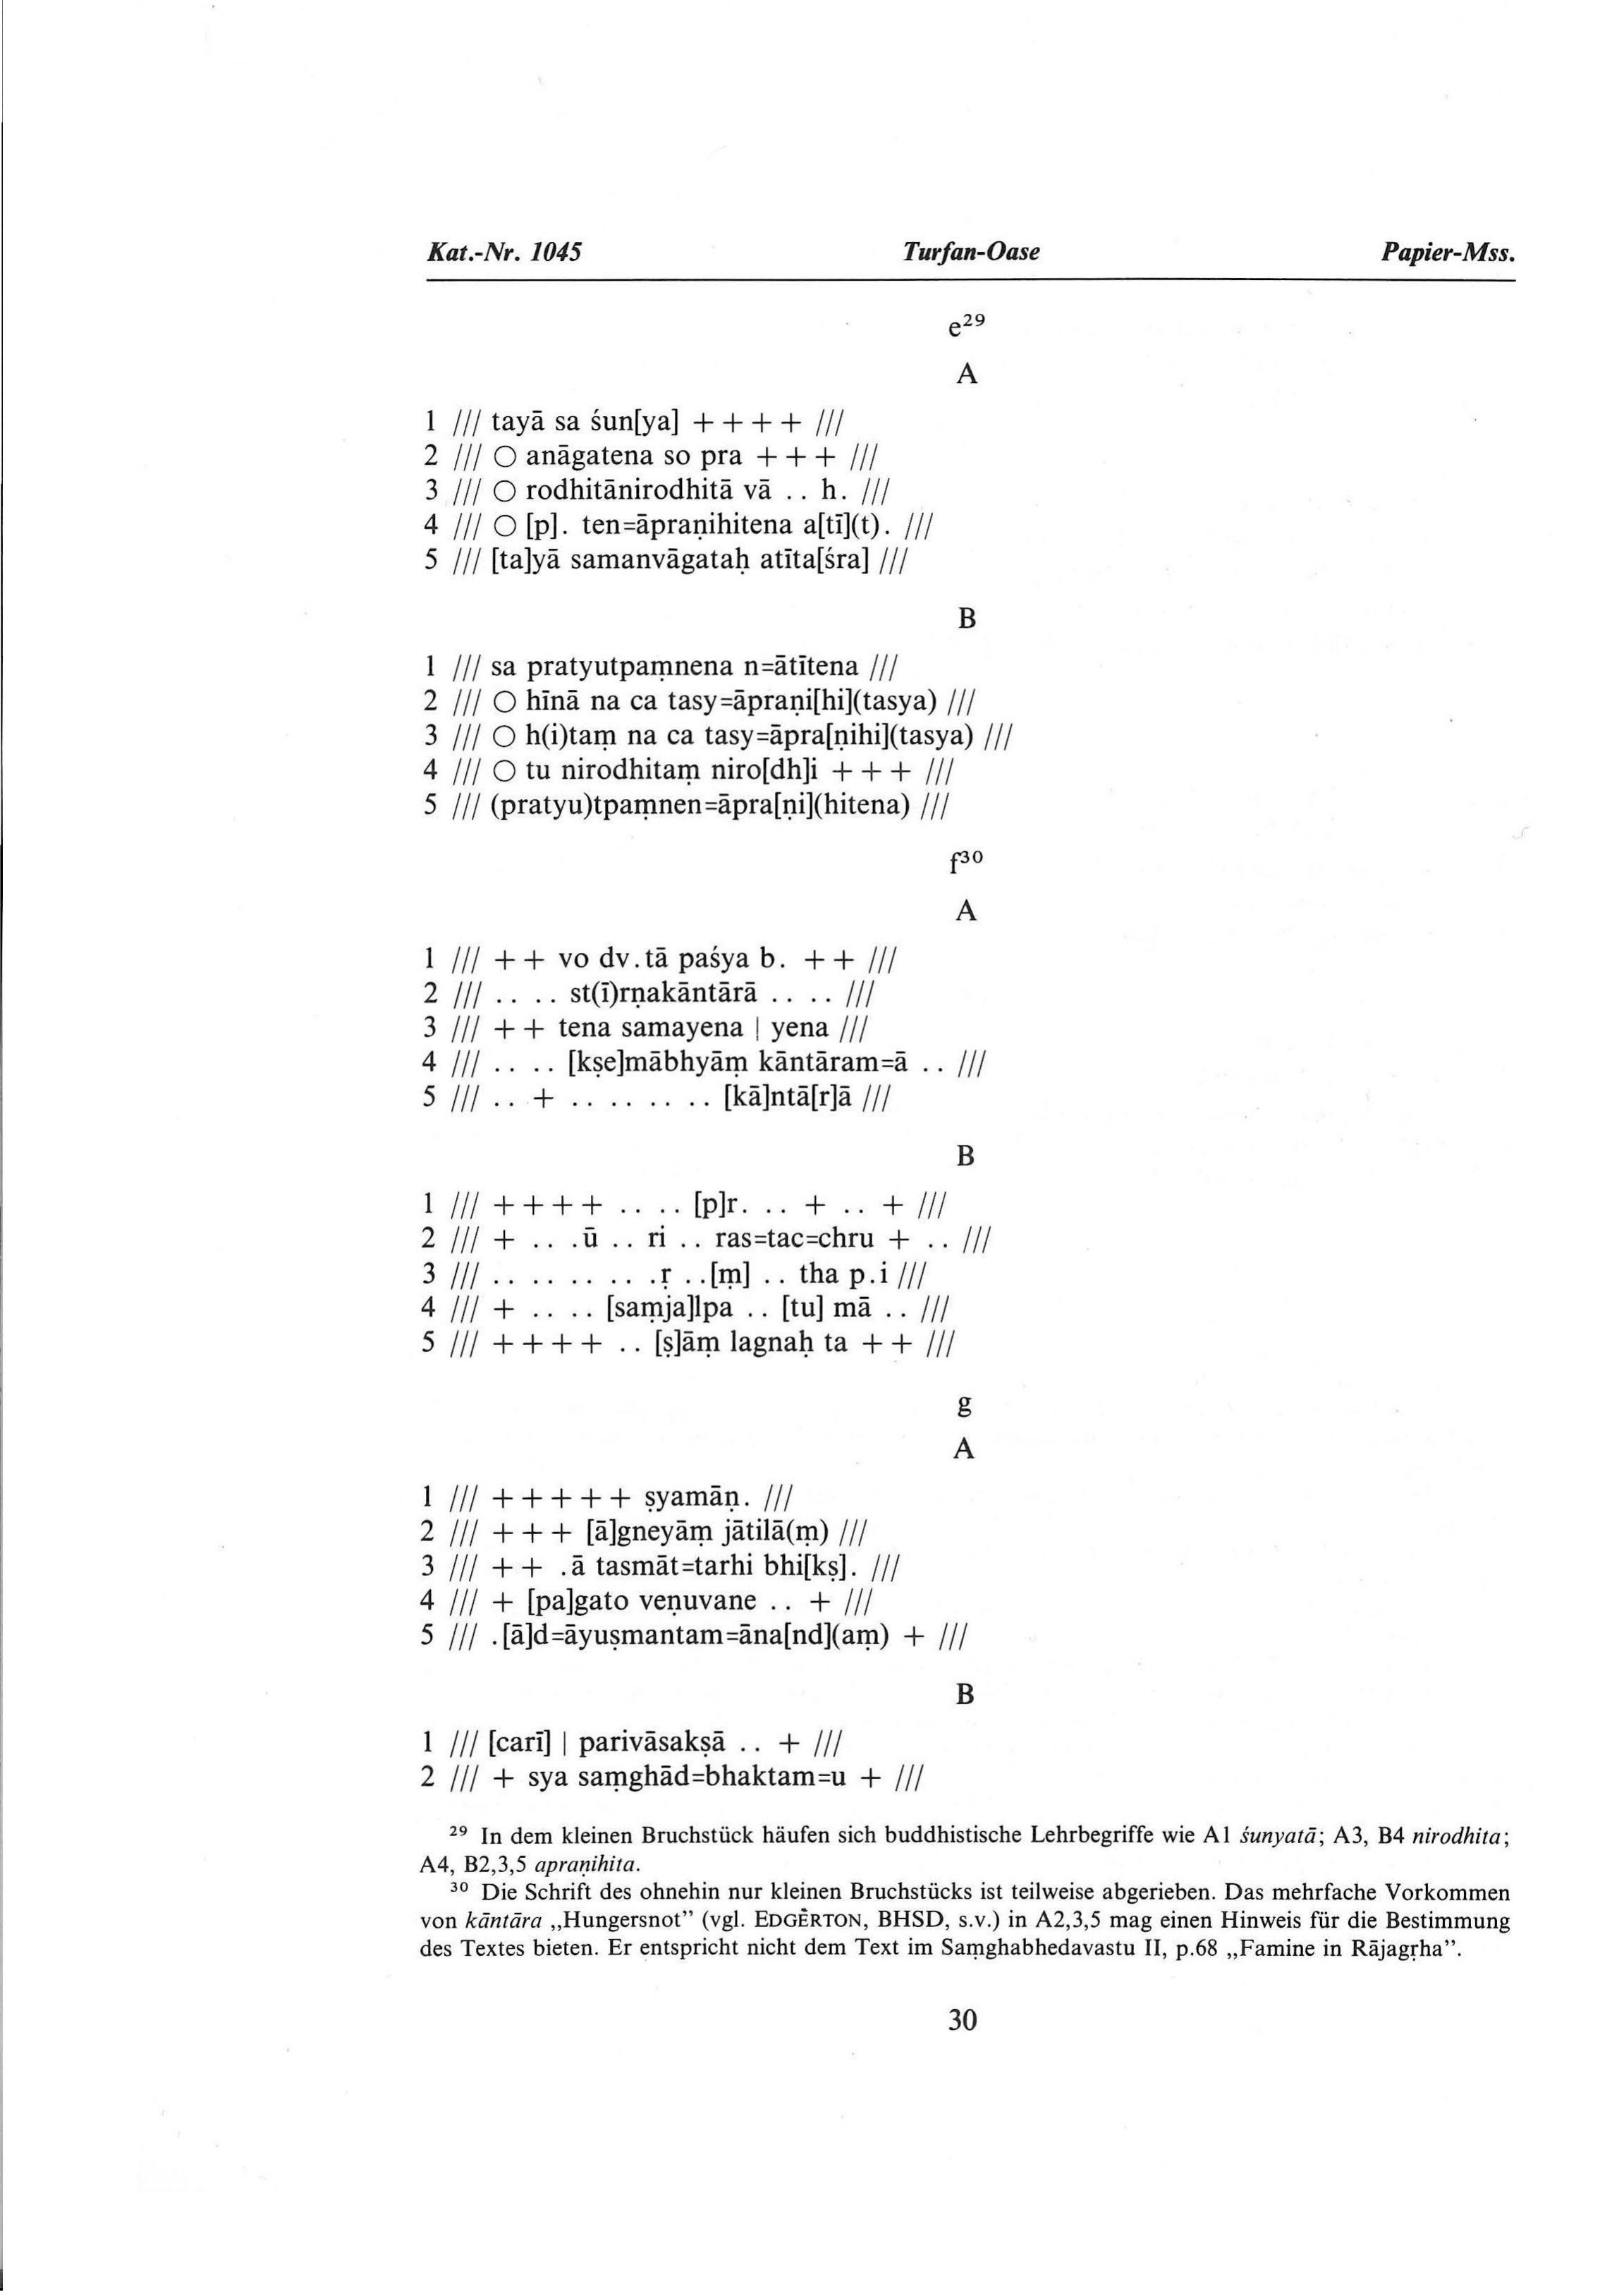 Kat.-Nr. 1045 Turfan-Oase Papier-Mss.
e²⁹
A
1 /// tayā sa śun[ya] + + + + ///
2 /// ○ anāgatena so pra + + + ///
3 /// ○ rodhitānirodhitā vā . . h. ///
4 /// ○ [p]. ten=āpraṇihitena a[tī](t). ///
5 /// [ta]yā samanvāgataḥ atīta[śra] ///
B
1 /// sa pratyutpaṃnena n=ātītena ///
2 /// ○ hīnā na ca tasy=āpraṇi[hi](tasya) ///
3 /// ○ h(i)taṃ na ca tasy=āpra[ṇihi](tasya) ///
4 /// ○ tu nirodhitaṃ niro[dh]i + + + ///
5 /// (pratyu)tpaṃnen=āpra[ṇi](hitena) ///
f³⁰
A
1 /// + + vo dv.tā paśya b. + + ///
2 /// . . . . st(ī)rṇakāntārā . . . . ///
3 /// + + tena samayena | yena ///
4 /// . . . . [kṣe]mābhyāṃ kāntāram=ā . . ///
5 /// . . + . . . . . . . . [kā]ntā[r]ā ///
B
1 /// + + + + . . . . [p]r. . . + . . + ///
2 /// + . . .ū . . ri . . ras=tac=chru + . . ///
3 /// . . . . . . . . .ṛ . .[ṃ] . . tha p.i ///
4 /// + . . . . [saṃja]lpa . . [tu] mā . . ///
5 /// + + + + . . [ṣ]āṃ lagnaḥ ta + + ///
g
A
1 /// + + + + + ṣyamāṇ. ///
2 /// + + + [ā]gneyāṃ jātilā(ṃ) ///
3 /// + + .ā tasmāt=tarhi bhi[kṣ]. ///
4 /// + [pa]gato veṇuvane . . + ///
5 /// .[ā]d=āyuṣmantam=āna[nd](aṃ) + ///
B
1 /// [carī] | parivāsakṣā . . + ///
2 /// + sya saṃghād=bhaktam=u + ///
²⁹ In dem kleinen Bruchstück häufen sich buddhistische Lehrbegriffe wie A1 śunyatā; A3, B4 nirodhita;
A4, B2,3,5 apraṇihita.
³⁰ Die Schrift des ohnehin nur kleinen Bruchstücks ist teilweise abgerieben. Das mehrfache Vorkommen
von kāntāra „Hungersnot” (vgl. EDGERTON, BHSD, s.v.) in A2,3,5 mag einen Hinweis für die Bestimmung
des Textes bieten. Er entspricht nicht dem Text im Saṃghabhedavastu II, p.68 „Famine in Rājagṛha”.
30